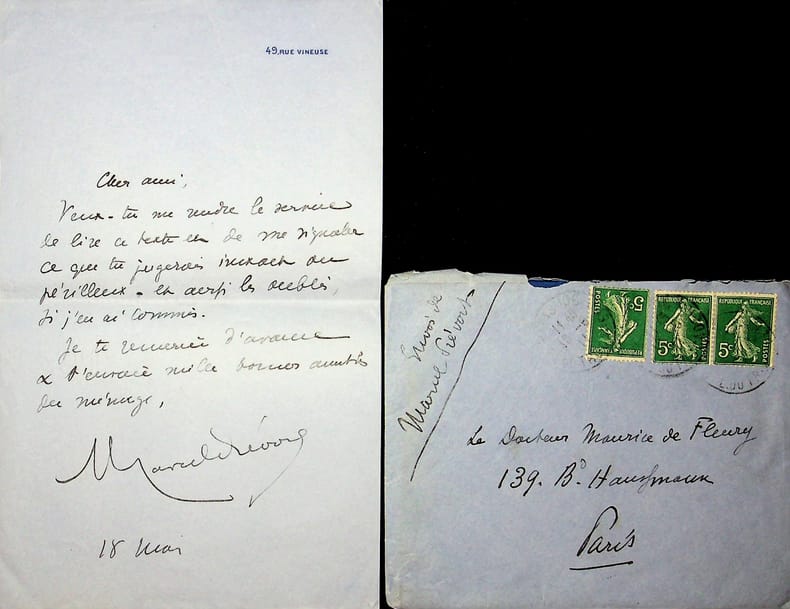 49, RUE VINEUSE
Cher ami,
Veux-tu me rendre le service
de lire ce texte et de me signaler
ce que tu jugerais inexact ou
périlleux - et aussi les oublis,
si j'en ai commis.
Je te remercie d'avance
& t'envoie mille bonnes amitiés
du ménage,
Marcel Prévost
18 mai
Envoi de
Marcel Prévost
POSTES
5c
RÉPUBLIQUE FRANÇAISE
RÉPUBLIQUE FRANÇAISE
5c
POSTES
RÉPUBLIQUE FRANÇAISE
5c
POSTES
Le Docteur Maurice de Fleury
139. Bd Haussmann
Paris